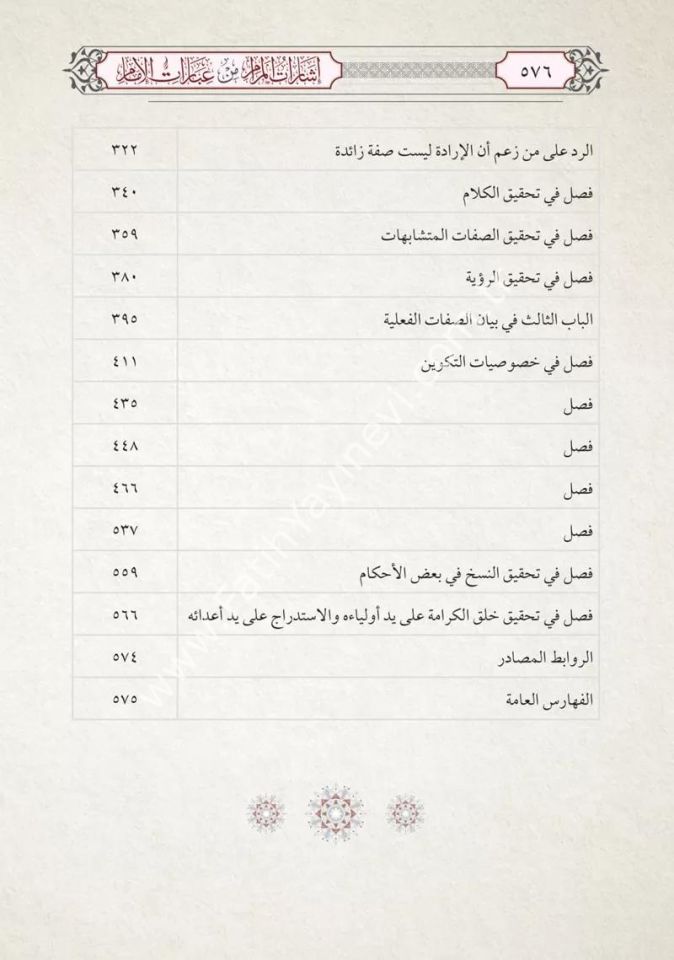 إشارات المرام من عبارات الإمام ٥٧٦
الرد على من زعم أن الإرادة ليست صفة زائدة ٣٢٢
فصل في تحقيق الكلام ٣٤٠
فصل في تحقيق الصفات المتشابهات ٣٥٩
فصل في تحقيق الرؤية ٣٨٠
الباب الثالث في بيان الصفات الفعلية ٣٩٥
فصل في خصوصيات التكوين ٤١١
فصل ٤٣٥
فصل ٤٤٨
فصل ٤٦٦
فصل ٥٣٧
فصل في تحقيق النسخ في بعض الأحكام ٥٥٩
فصل في تحقيق خلق الكرامة على يد أولياءه والاستدراج على يد أعدائه ٥٦٦
الروابط المصادر ٥٧٤
الفهارس العامة ٥٧٥